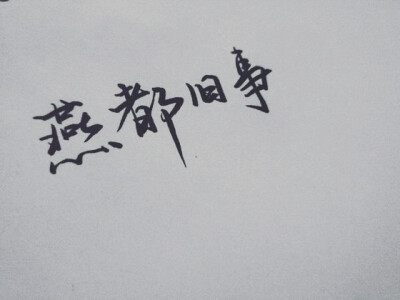 燕都旧事